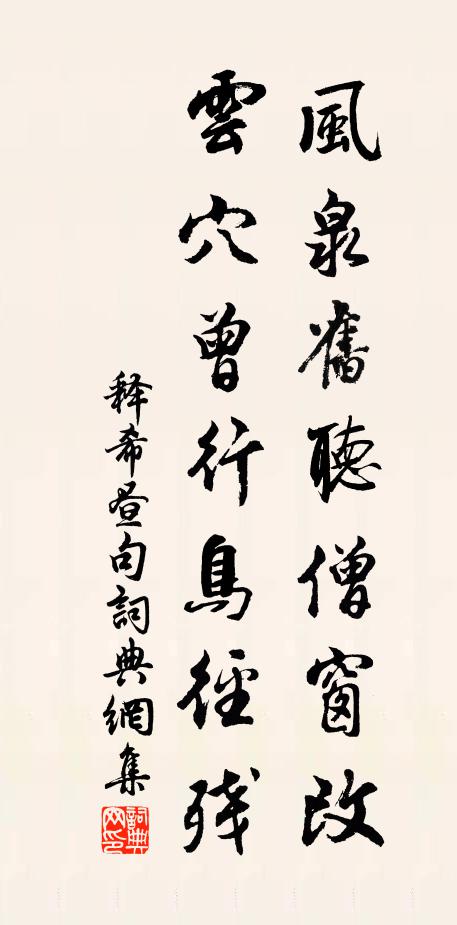 風泉舊聽僧窗改
雲穴曾行鳥徑残
释希昼句詞典網集
詞典网印